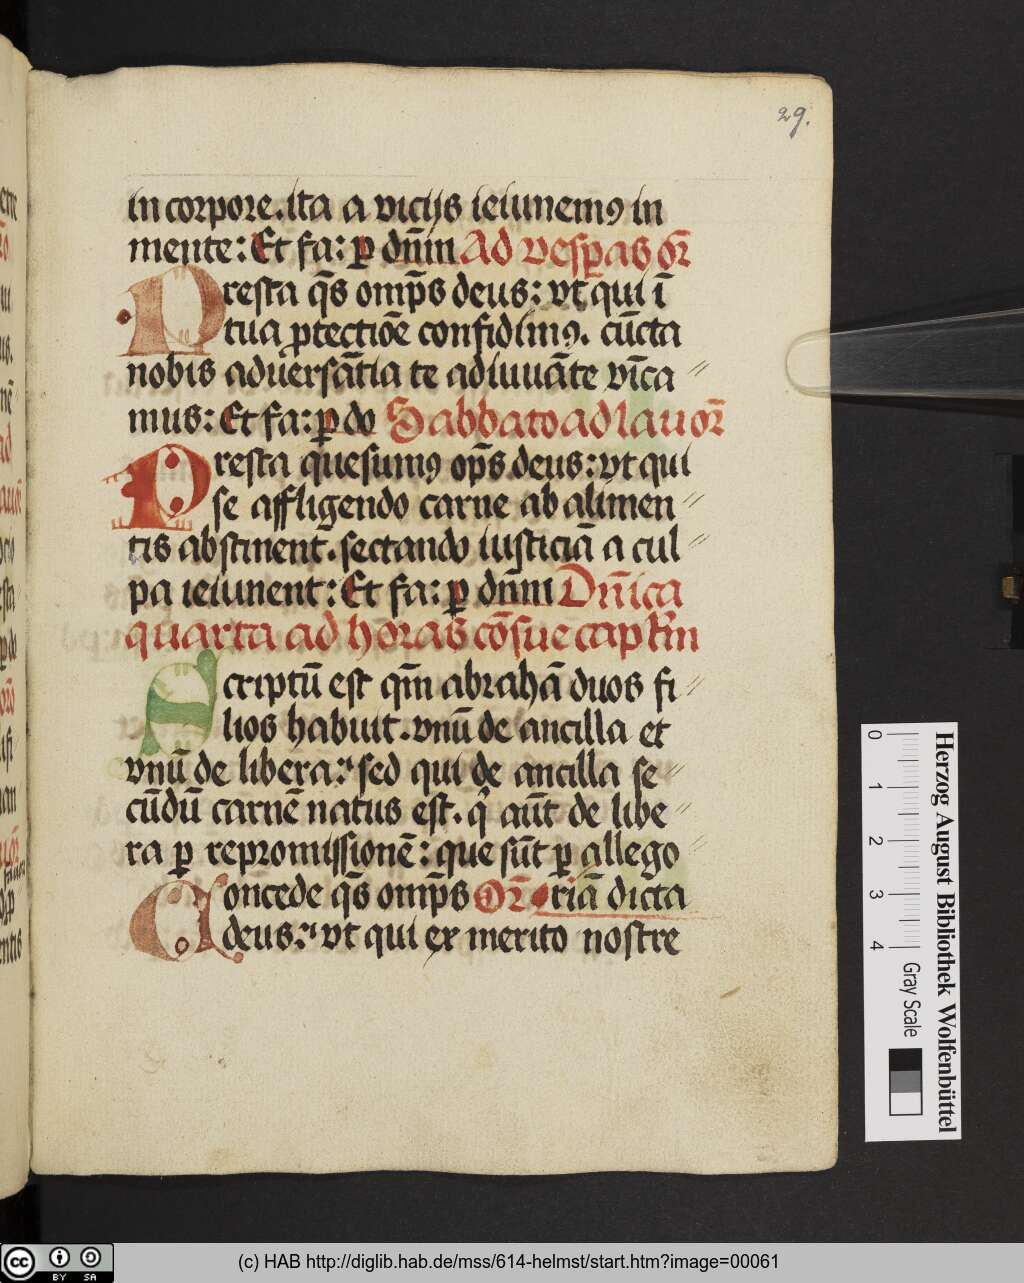 29.
in corpore. ita a vicijs ieiunemꝯ in
mente: Et fa: ꝑ dn̄m Ad vesꝑas or̄
Presta q̄s omp̄s deus: vt qui ī
tua ꝓtectiōe confidimꝯ. cūcta
nobis aduersātia te adiuuāte vīca //
mus: Et fa: ꝑ do Sabbato ad lau or̄
Presta quesumꝯ op̄s deus: vt qui
se affligendo carne ab alimen //
tis abstinent̄. sectando iusticiā a cul //
pa ieiunent: Et fa: ꝑ dn̄m Dn̄ica
quarta ad horas cōsuē capl̄m
Scriptū est qm̄ abrahā duos fi //
lios habuit. vnū de ancilla et
vnū de libera: sed qui de ancilla se //
cūdū carnē natus est. q̇ aūt de libe //
ra ꝑ repromissionē: que sūt ꝑ allego //
Concede q̄s omp̄s Or̄ riā dicta
deus: vt qui ex merito nostre
Herzog August Bibliothek Wolfenbüttel
0 1 2 3 4 Gray Scale
CC BY SA
(c) HAB http://diglib.hab.de/mss/614-helmst/start.htm?image=00061